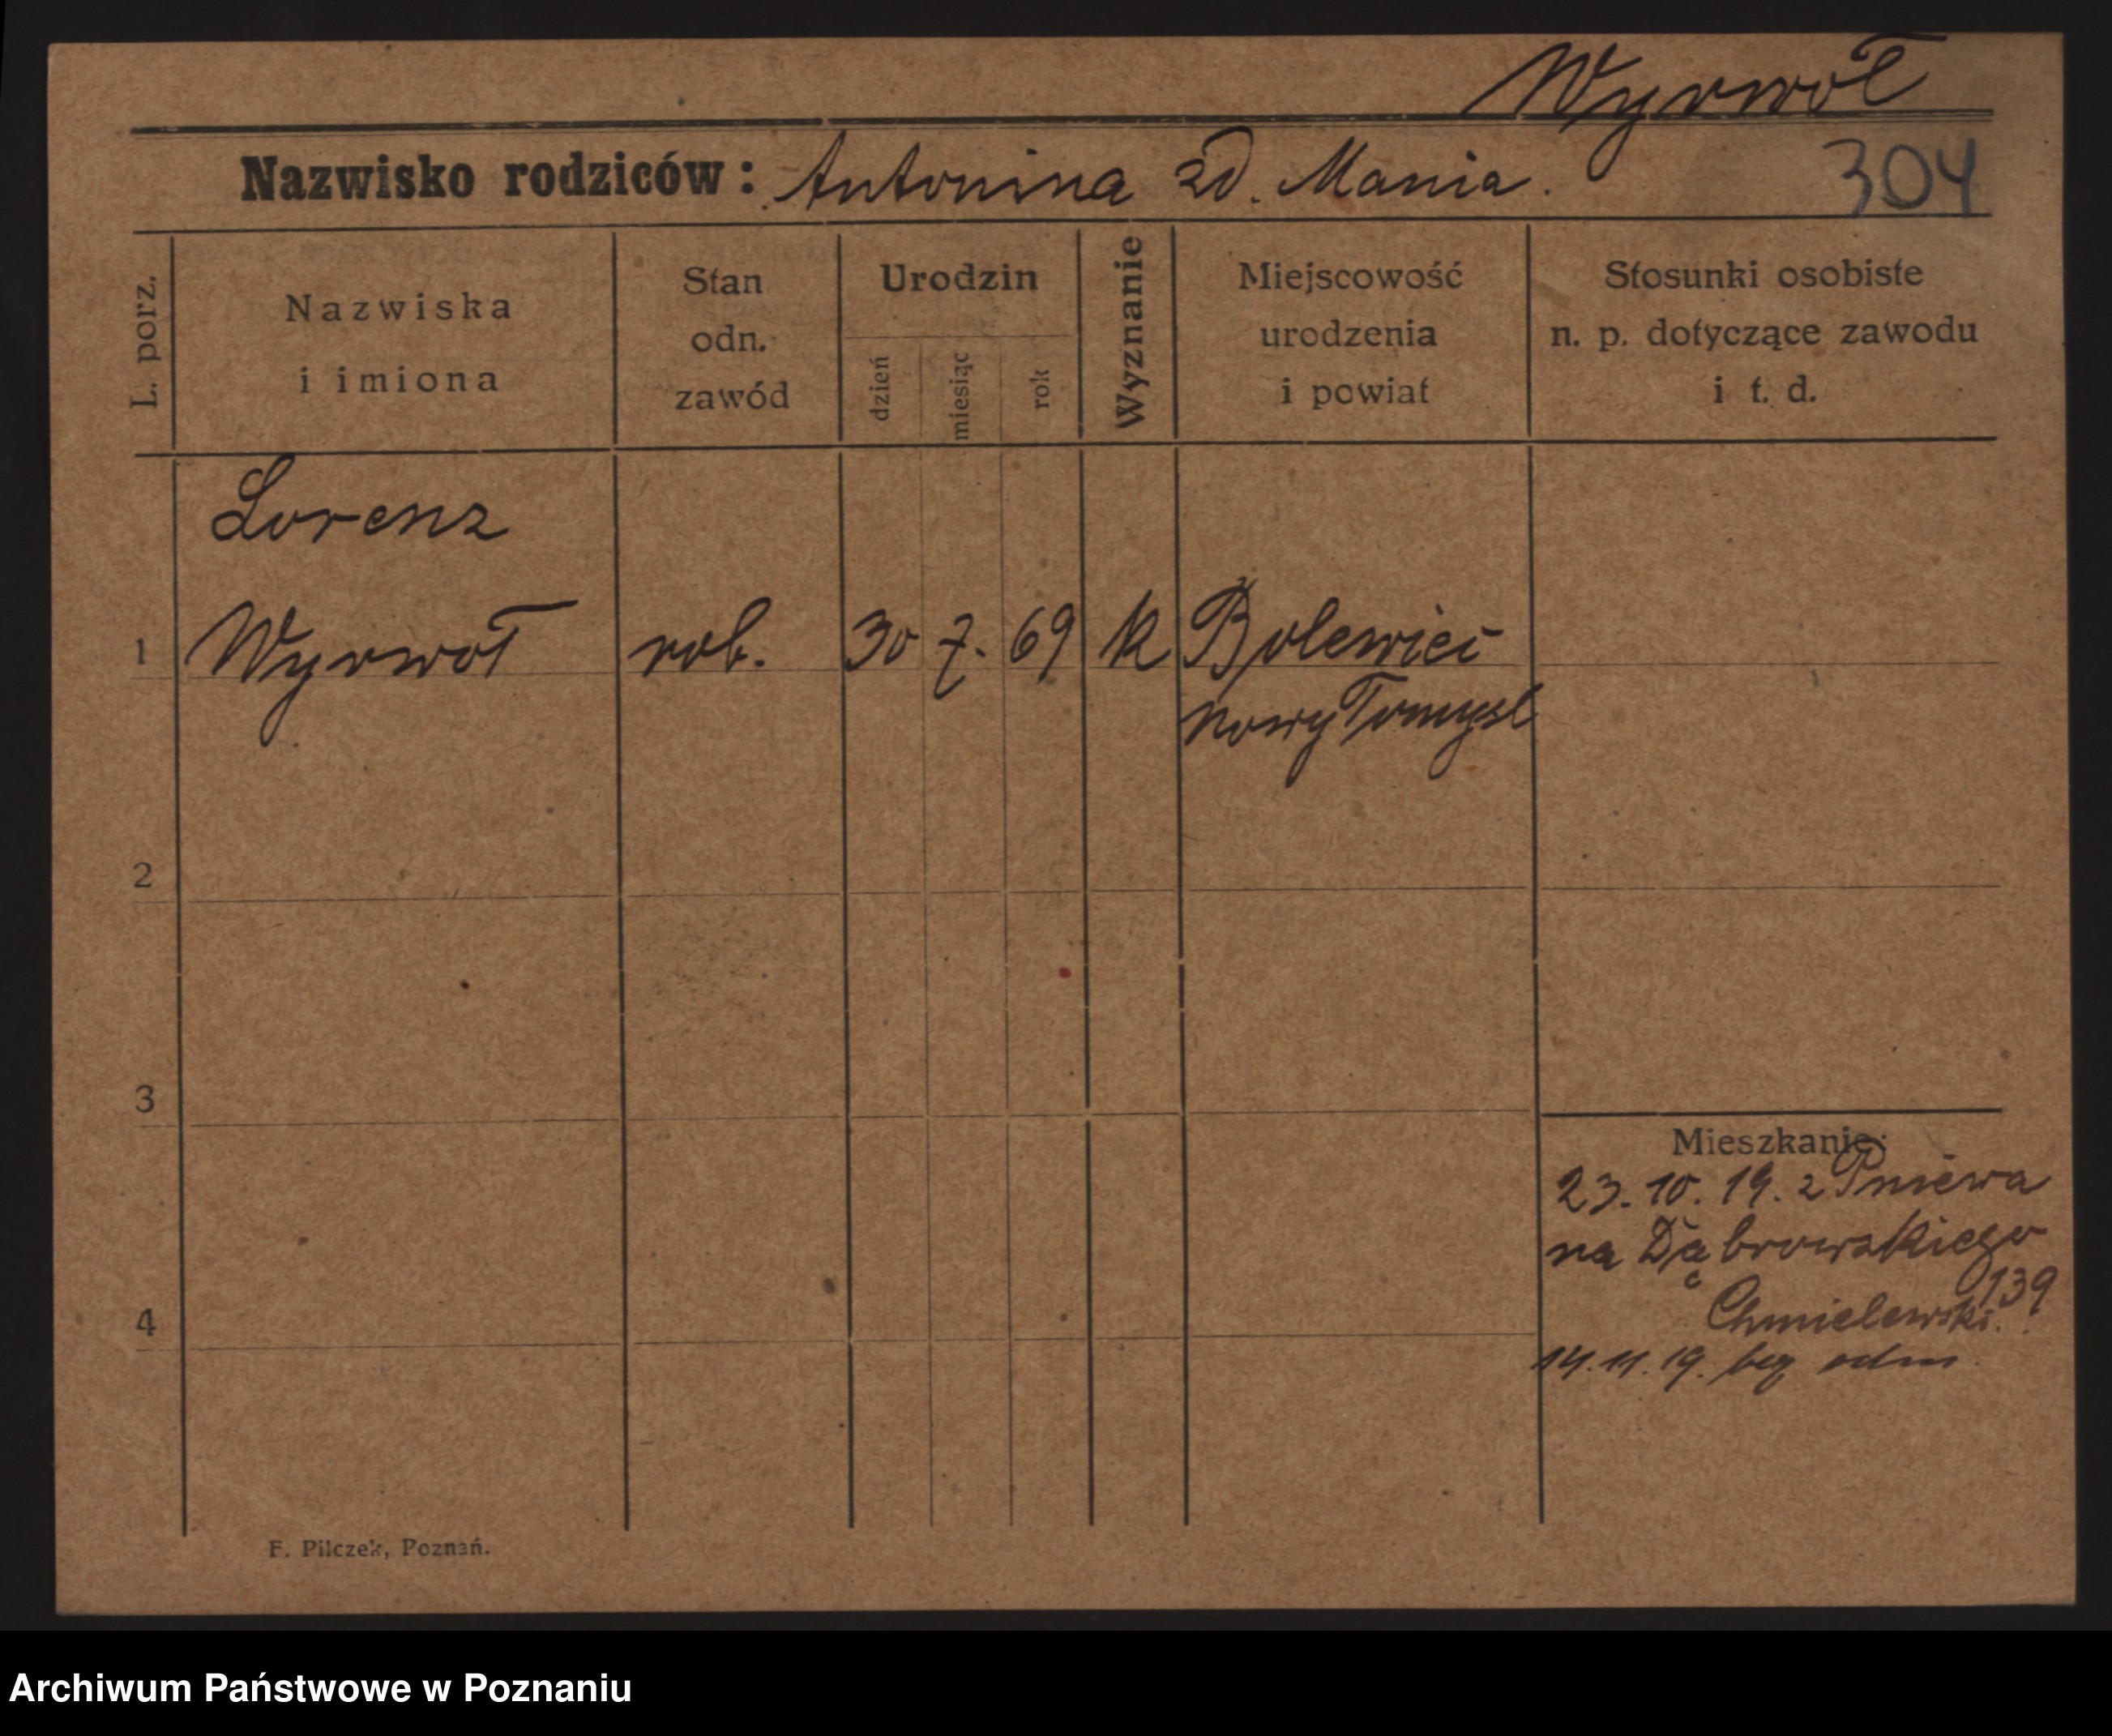 Wyrwoł
Nazwisko rodziców: Antonina zd. Mania.
304
L. porz.
Nazwiska
i imiona
Stan
odn.
zawód
Urodzin
dzień
miesiąc
rok
Wyznanie
Miejscowość
urodzenia
i powiat
Stosunki osobiste
n. p. dotyczące zawodu
i t. d.
Lorenz
1 Wyrwoł rob. 30 7. 69 k Bolewice
nowy Tomysl
2
3
Mieszkanie:
23. 10. 19. z Pniewa
na Dąbrowskiego
139
Chmielewski.
4
14. 11. 19. bez odm.
F. Pilczek, Poznań.
Archiwum Państwowe w Poznaniu